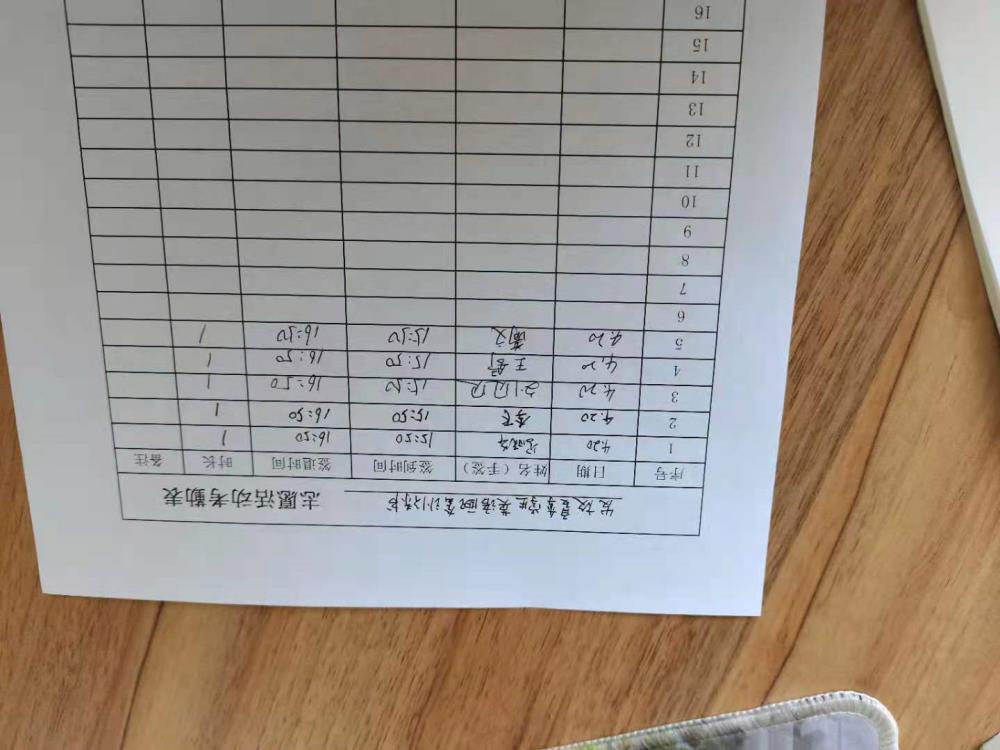 志愿活动考勤表
序号 日期 姓名（手签） 签到时间 签退时间 时长 备注
1 4.20 15:50 16:50 1
2 4.20 李飞 15:50 16:50 1
3 4.20 15:50 16:50 1
4 4.20 王舒 15:50 16:50 1
5 4.20 15:50 16:50 1
6
7
8
9
10
11
12
13
14
15
16